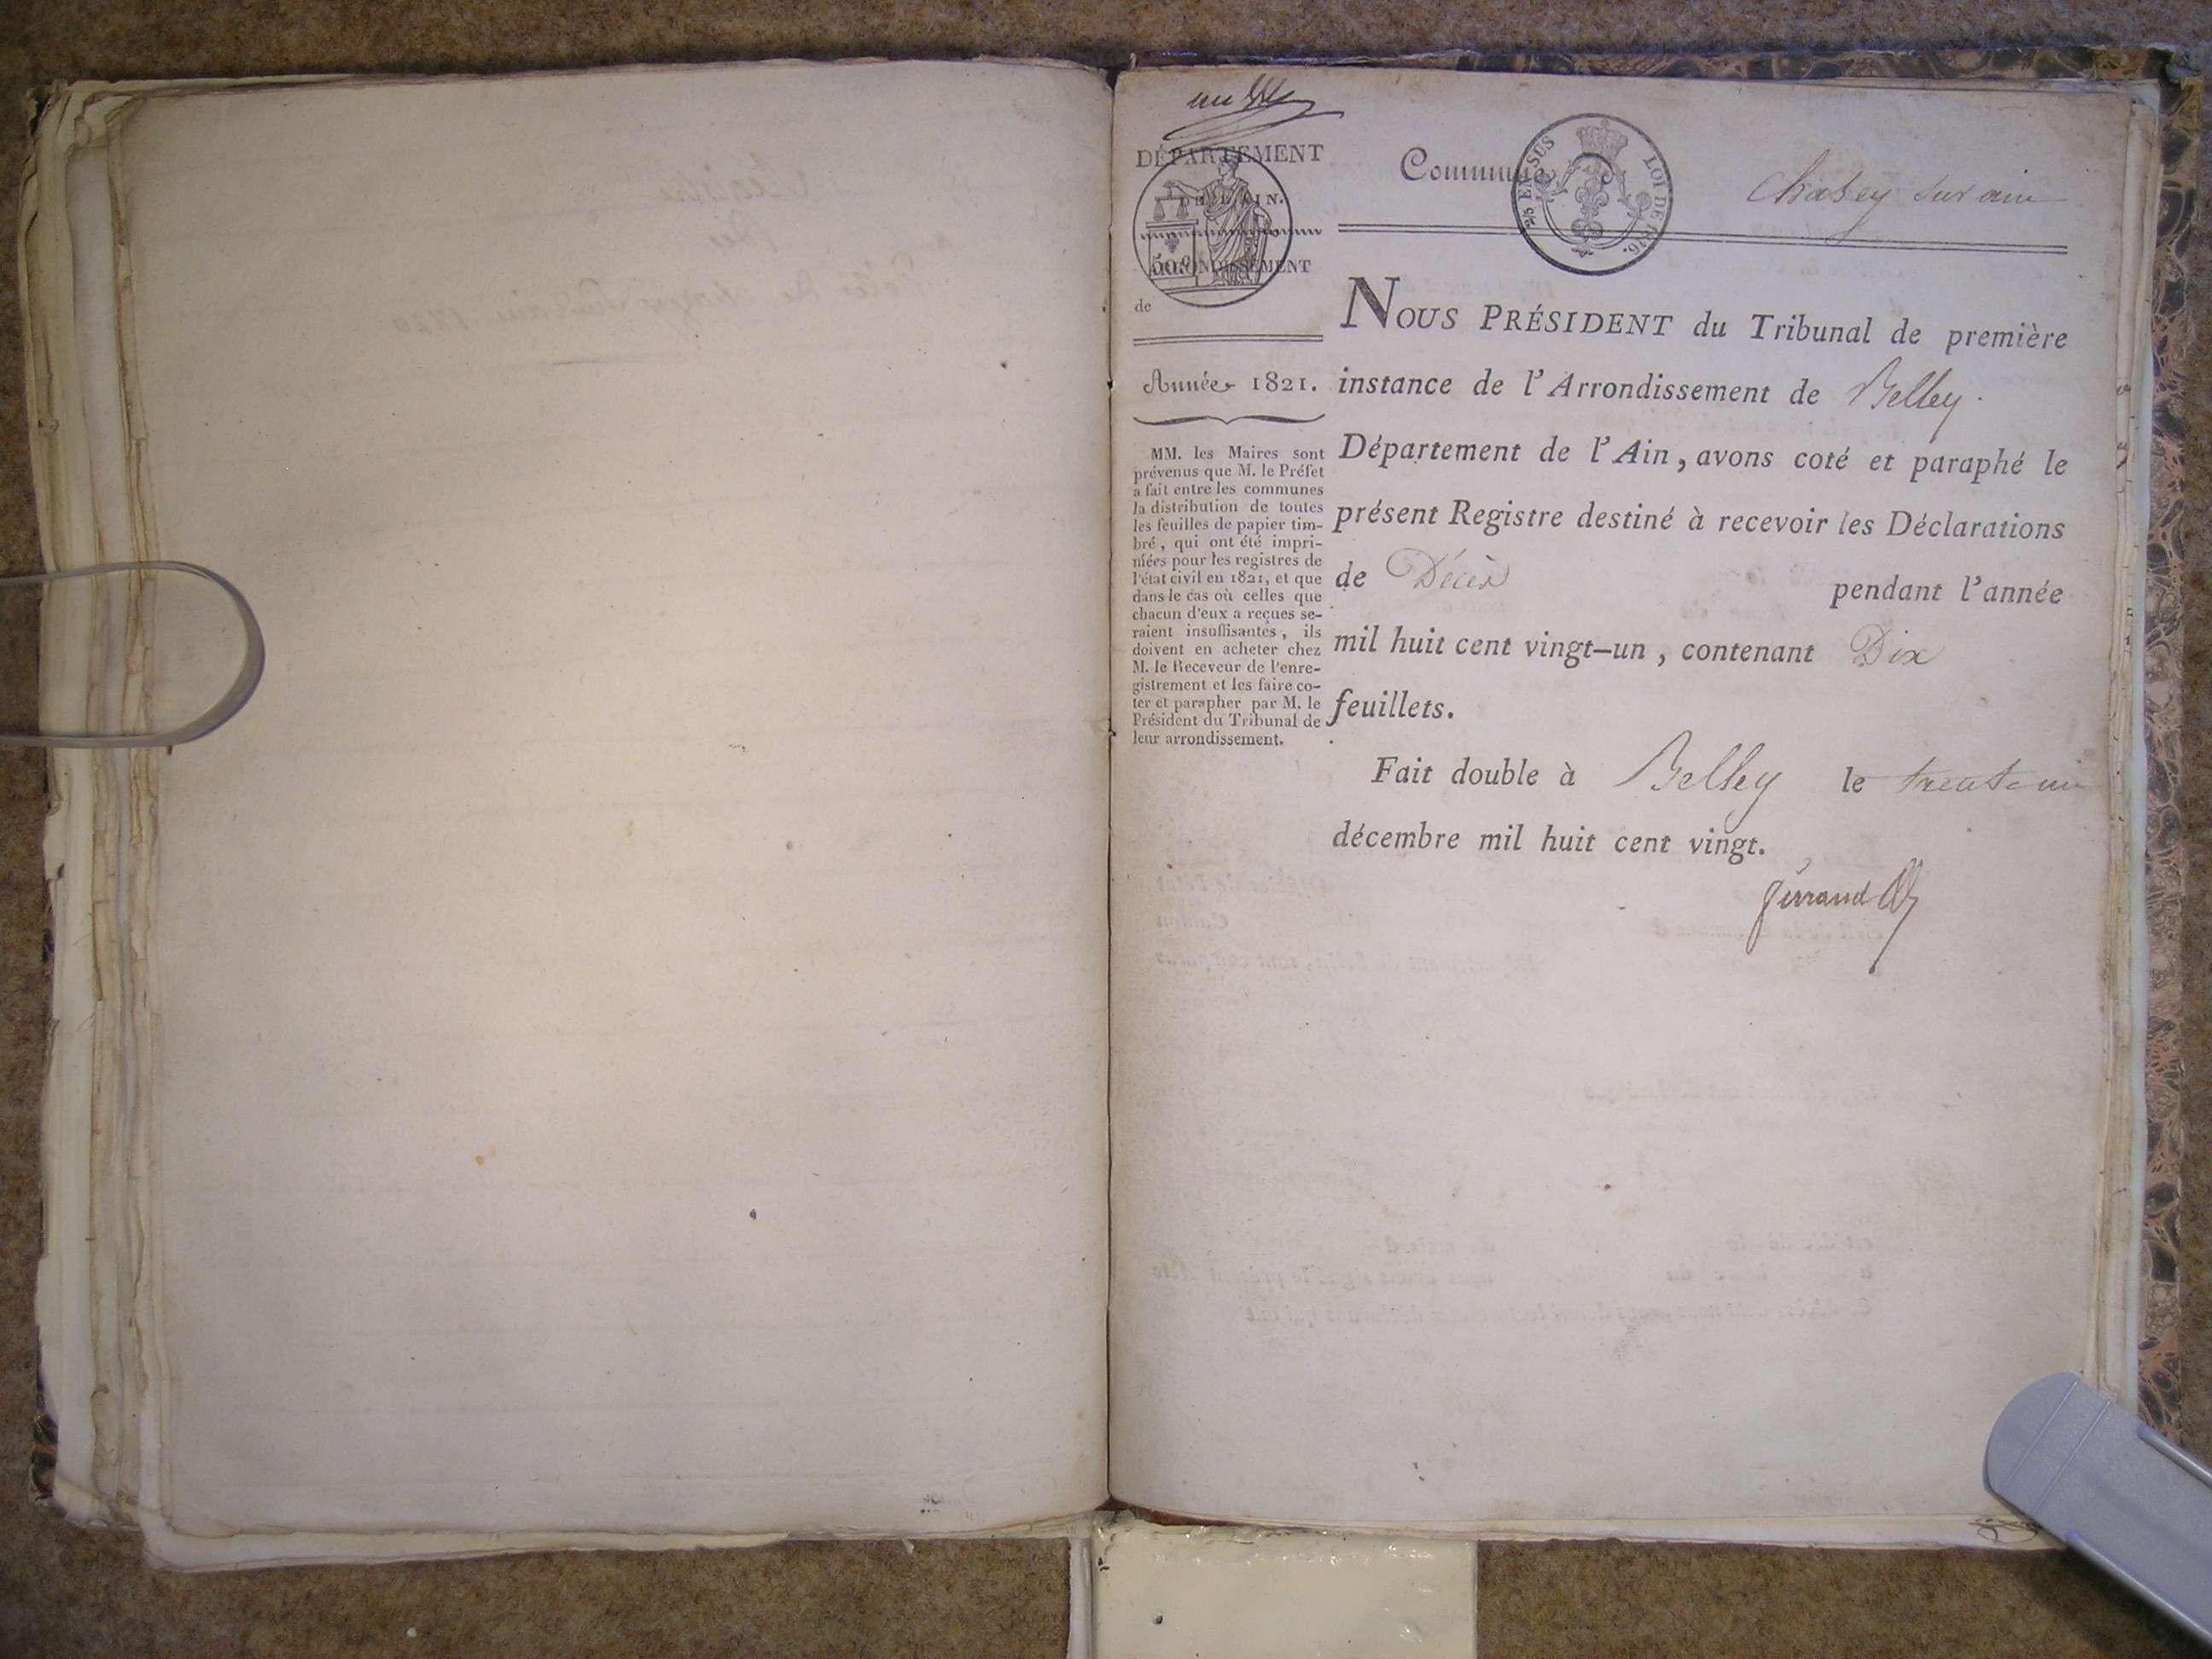 DÉPARTEMENT
DE L'AIN.
ARRONDISSEMENT
de
50.c
Année 1821.
MM. les Maires sont
prévenus que M. le Préfet
a fait entre les communes
la distribution de toutes
les feuilles de papier tim-
bré, qui ont été impri-
mées pour les registres de
l'état civil en 1821, et que
dans le cas où celles que
chacun d'eux a reçues se-
raient insuffisantes, ils
doivent en acheter chez
M. le Receveur de l'enre-
gistrement et les faire co-
ter et parapher par M. le
Président du Tribunal de
leur arrondissement.
Commune Chasey sur ain
EN SUS LOI DE 1816.
NOUS PRÉSIDENT du Tribunal de première
instance de l'Arrondissement de Belley.
Département de l'Ain, avons coté et paraphé le
présent Registre destiné à recevoir les Déclarations
de Décès pendant l'année
mil huit cent vingt-un, contenant Dix
feuillets.
Fait double à Belley le trente un
décembre mil huit cent vingt.